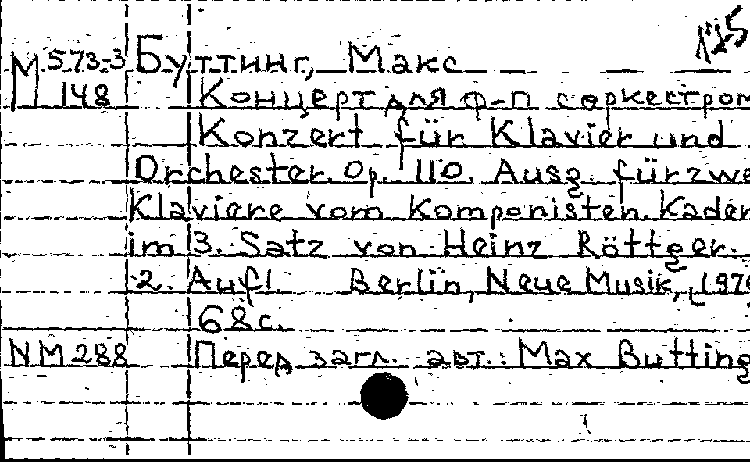 125
М 573-3 Буттинг, Макс
148 Концерт для ф-п с оркестром
Konzert für Klavier und
Orchester. Op. 110. Ausg. für zwe
Klaviere vom Komponisten. Kaden
im 3. Satz von Heinz Röttger.
2. Aufl. Berlin, Neue Musik, [197
68с.
NM 288 Перед загл. авт.: Max Butting